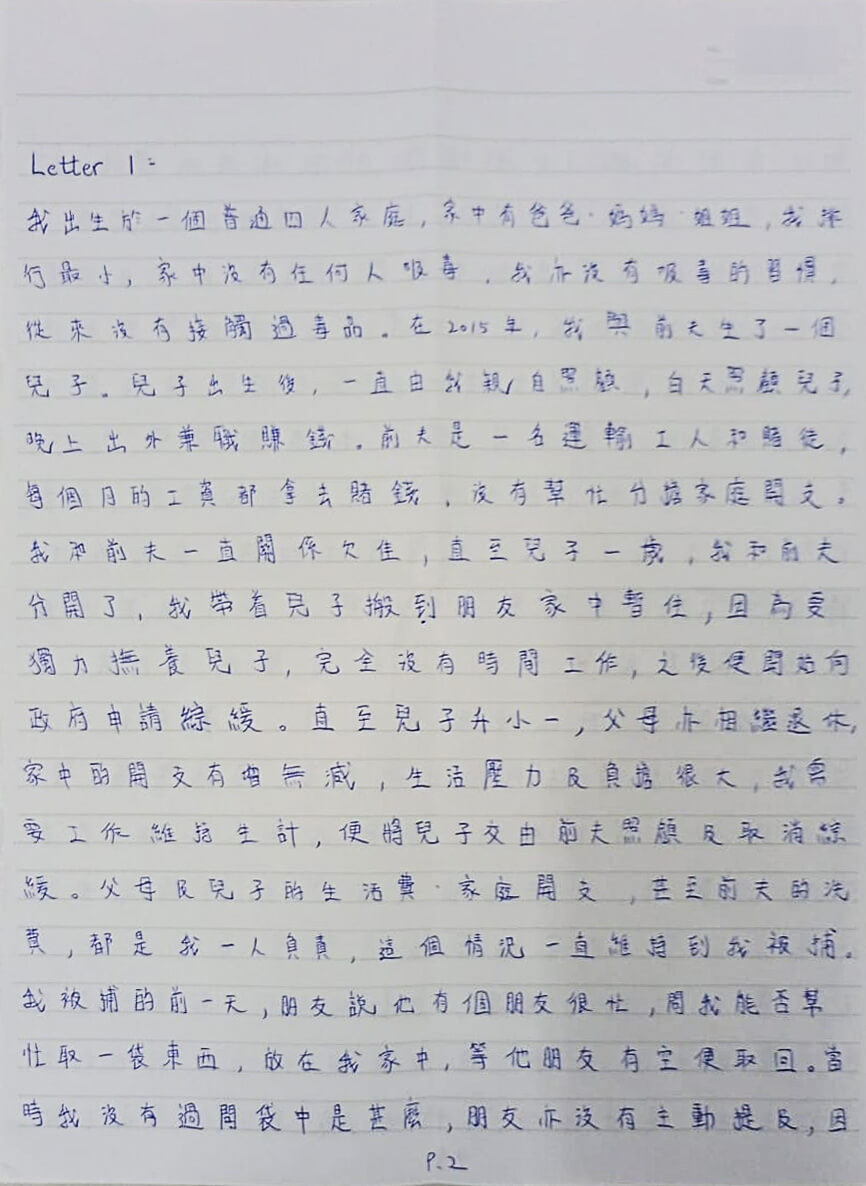 Letter 1:
我出生於一個普通四人家庭，家中有爸爸、媽媽、姐姐，我排
行最小，家中沒有任何人吸毒，我亦沒有吸毒的習慣，
從來沒有接觸過毒品。在2015年，我與前夫生了一個
兒子。兒子出生後，一直由我親自照顧，白天照顧兒子，
晚上出外兼職賺錢。前夫是一名運輸工人和賭徒，
每個月的工資都拿去賭錢，沒有幫忙分擔家庭開支。
我和前夫一直關係欠佳，直至兒子一歲，我和前夫
分開了，我帶着兒子搬到朋友家中暫住，因為要
獨力撫養兒子，完全沒有時間工作，之後便開始向
政府申請綜緩。直至兒子升小一，父母亦相繼退休，
家中的開支有增無減，生活壓力及負擔很大，我需
要工作維持生計，便將兒子交由前夫照顧及取消綜
緩。父母及兒子的生活費、家庭開支，甚至前夫的洗
費，都是我一人負責，這個情況一直維持到我被捕。
我被捕的前一天，朋友說他有個朋友很忙，問我能否幫
忙取一袋東西，放在我家中，等他朋友有空便取回。當
時我沒有過問袋中是甚麼，朋友亦沒有主動提及，因
P.2